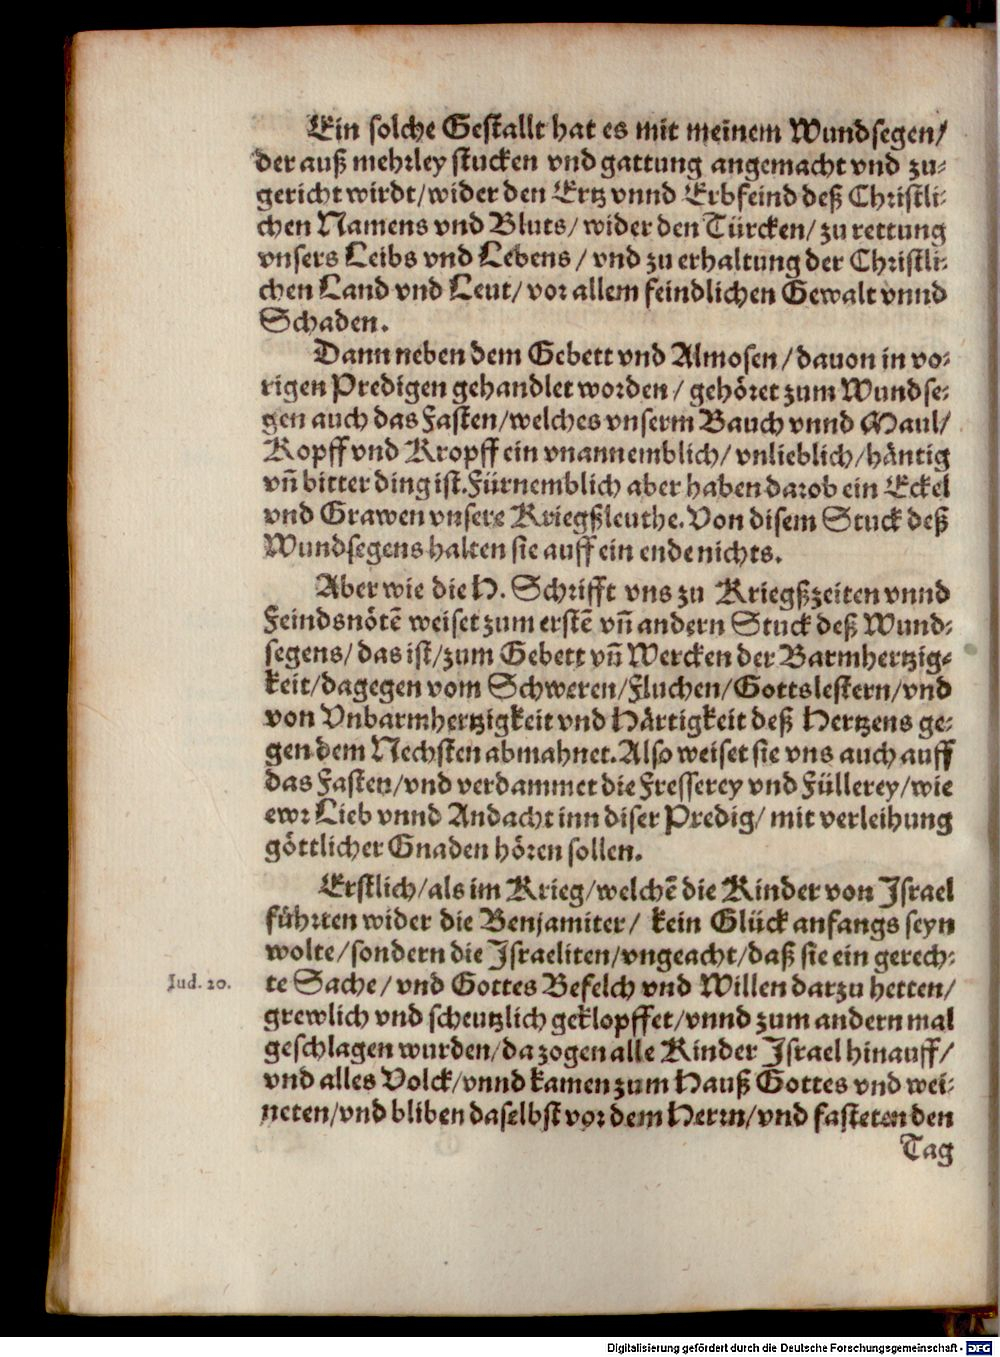 Ein solche Gestallt hat es mit meinem Wundsegen/
der auß mehrley stucken vnd gattung angemacht vnd zu-
gericht wirdt/wider den Ertz vnnd Erbfeind deß Christli-
chen Namens vnd Bluts/ wider den Türcken/ zu rettung
vnsers Leibs vnd Lebens / vnd zu erhaltung der Christli-
chen Land vnd Leut/ vor allem feindlichen Gewalt vnnd
Schaden.
Dann neben dem Gebett vnd Almosen/dauon in vo-
rigen Predigen gehandlet worden/ gehöret zum Wundse-
gen auch das Fasten/welches vnserm Bauch vnnd Maul/
Kopff vnd Kropff ein vnannemblich/ vnlieblich/häntig
vñ bitter ding ist. Fürnemblich aber haben darob ein Eckel
vnd Grawen vnsere Kriegßleuthe. Von disem Stuck deß
Wundsegens halten sie auff ein ende nichts.
Aber wie die H. Schrifft vns zu Kriegßzeiten vnnd
Feindsnötẽ weiset zum erstẽ vñ andern Stuck deß Wund-
segens/ das ist/zum Gebett vñ Wercken der Barmhertzig-
keit/dagegen vom Schweren/Fluchen/Gottslestern/vnd
von Vnbarmhertzigkeit vnd Härtigkeit deß Hertzens ge-
gen dem Nechsten abmahnet. Also weiset sie vns auch auff
das Fasten/vnd verdammet die Fresserey vnd Füllerey/wie
ewr Lieb vnnd Andacht inn diser Predig/ mit verleihung
göttlicher Gnaden hören sollen.
Erstlich/als im Krieg/welchẽ die Kinder von Israel
führten wider die Benjamiter/ kein Glück anfangs seyn
wolte/sondern die Israeliten/vngeacht/daß sie ein gerech-
Iud. 20.
te Sache/ vnd Gottes Befelch vnd Willen darzu hetten/
grewlich vnd scheutzlich geklopffet/vnnd zum andern mal
geschlagen wurden/da zogen alle Kinder Israel hinauff/
vnd alles Volck/vnnd kamen zum Hauß Gottes vnd wei-
neten/vnd bliben daselbst vor dem Herrn/vnd fasteten den
Tag
Digitalisierung gefördert durch die Deutsche Forschungsgemeinschaft - DFG